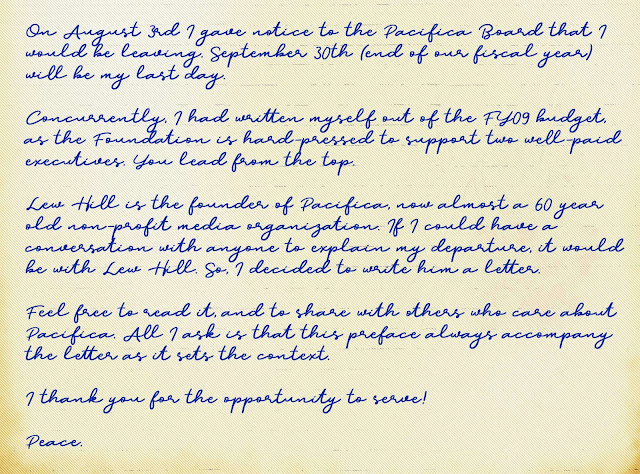 On August 3rd I gave notice to the Pacifica Board that I
would be leaving. September 30th (end of our fiscal year)
will be my last day.
Concurrently, I had written myself out of the FY09 budget,
as the Foundation is hard-pressed to support two well-paid
executives. You lead from the top.
Lew Hill is the founder of Pacifica, now almost a 60 year
old non-profit media organization. If I could have a
conversation with anyone to explain my departure, it would
be with Lew Hill. So, I decided to write him a letter.
Feel free to read it, and to share with others who care about
Pacifica. All I ask is that this preface always accompany
the letter as it sets the context.
I thank you for the opportunity to serve!
Peace.